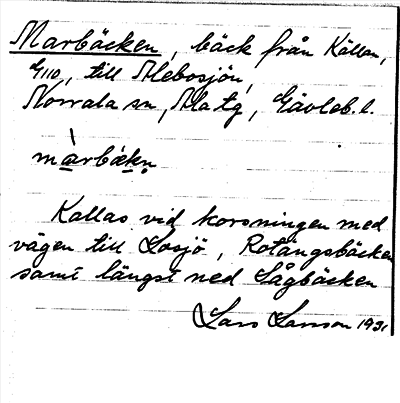 Marbäcken, bäck från Källan,
G110, till Alebosjön,
Norrala sn, Ala tg, Gävleb. l.
màrbäkn
Kallas vid korsningen med
vägen till Losjö, Rotängsbäcken
samt längst ned Sågbäcken
Lars Larsson 1931